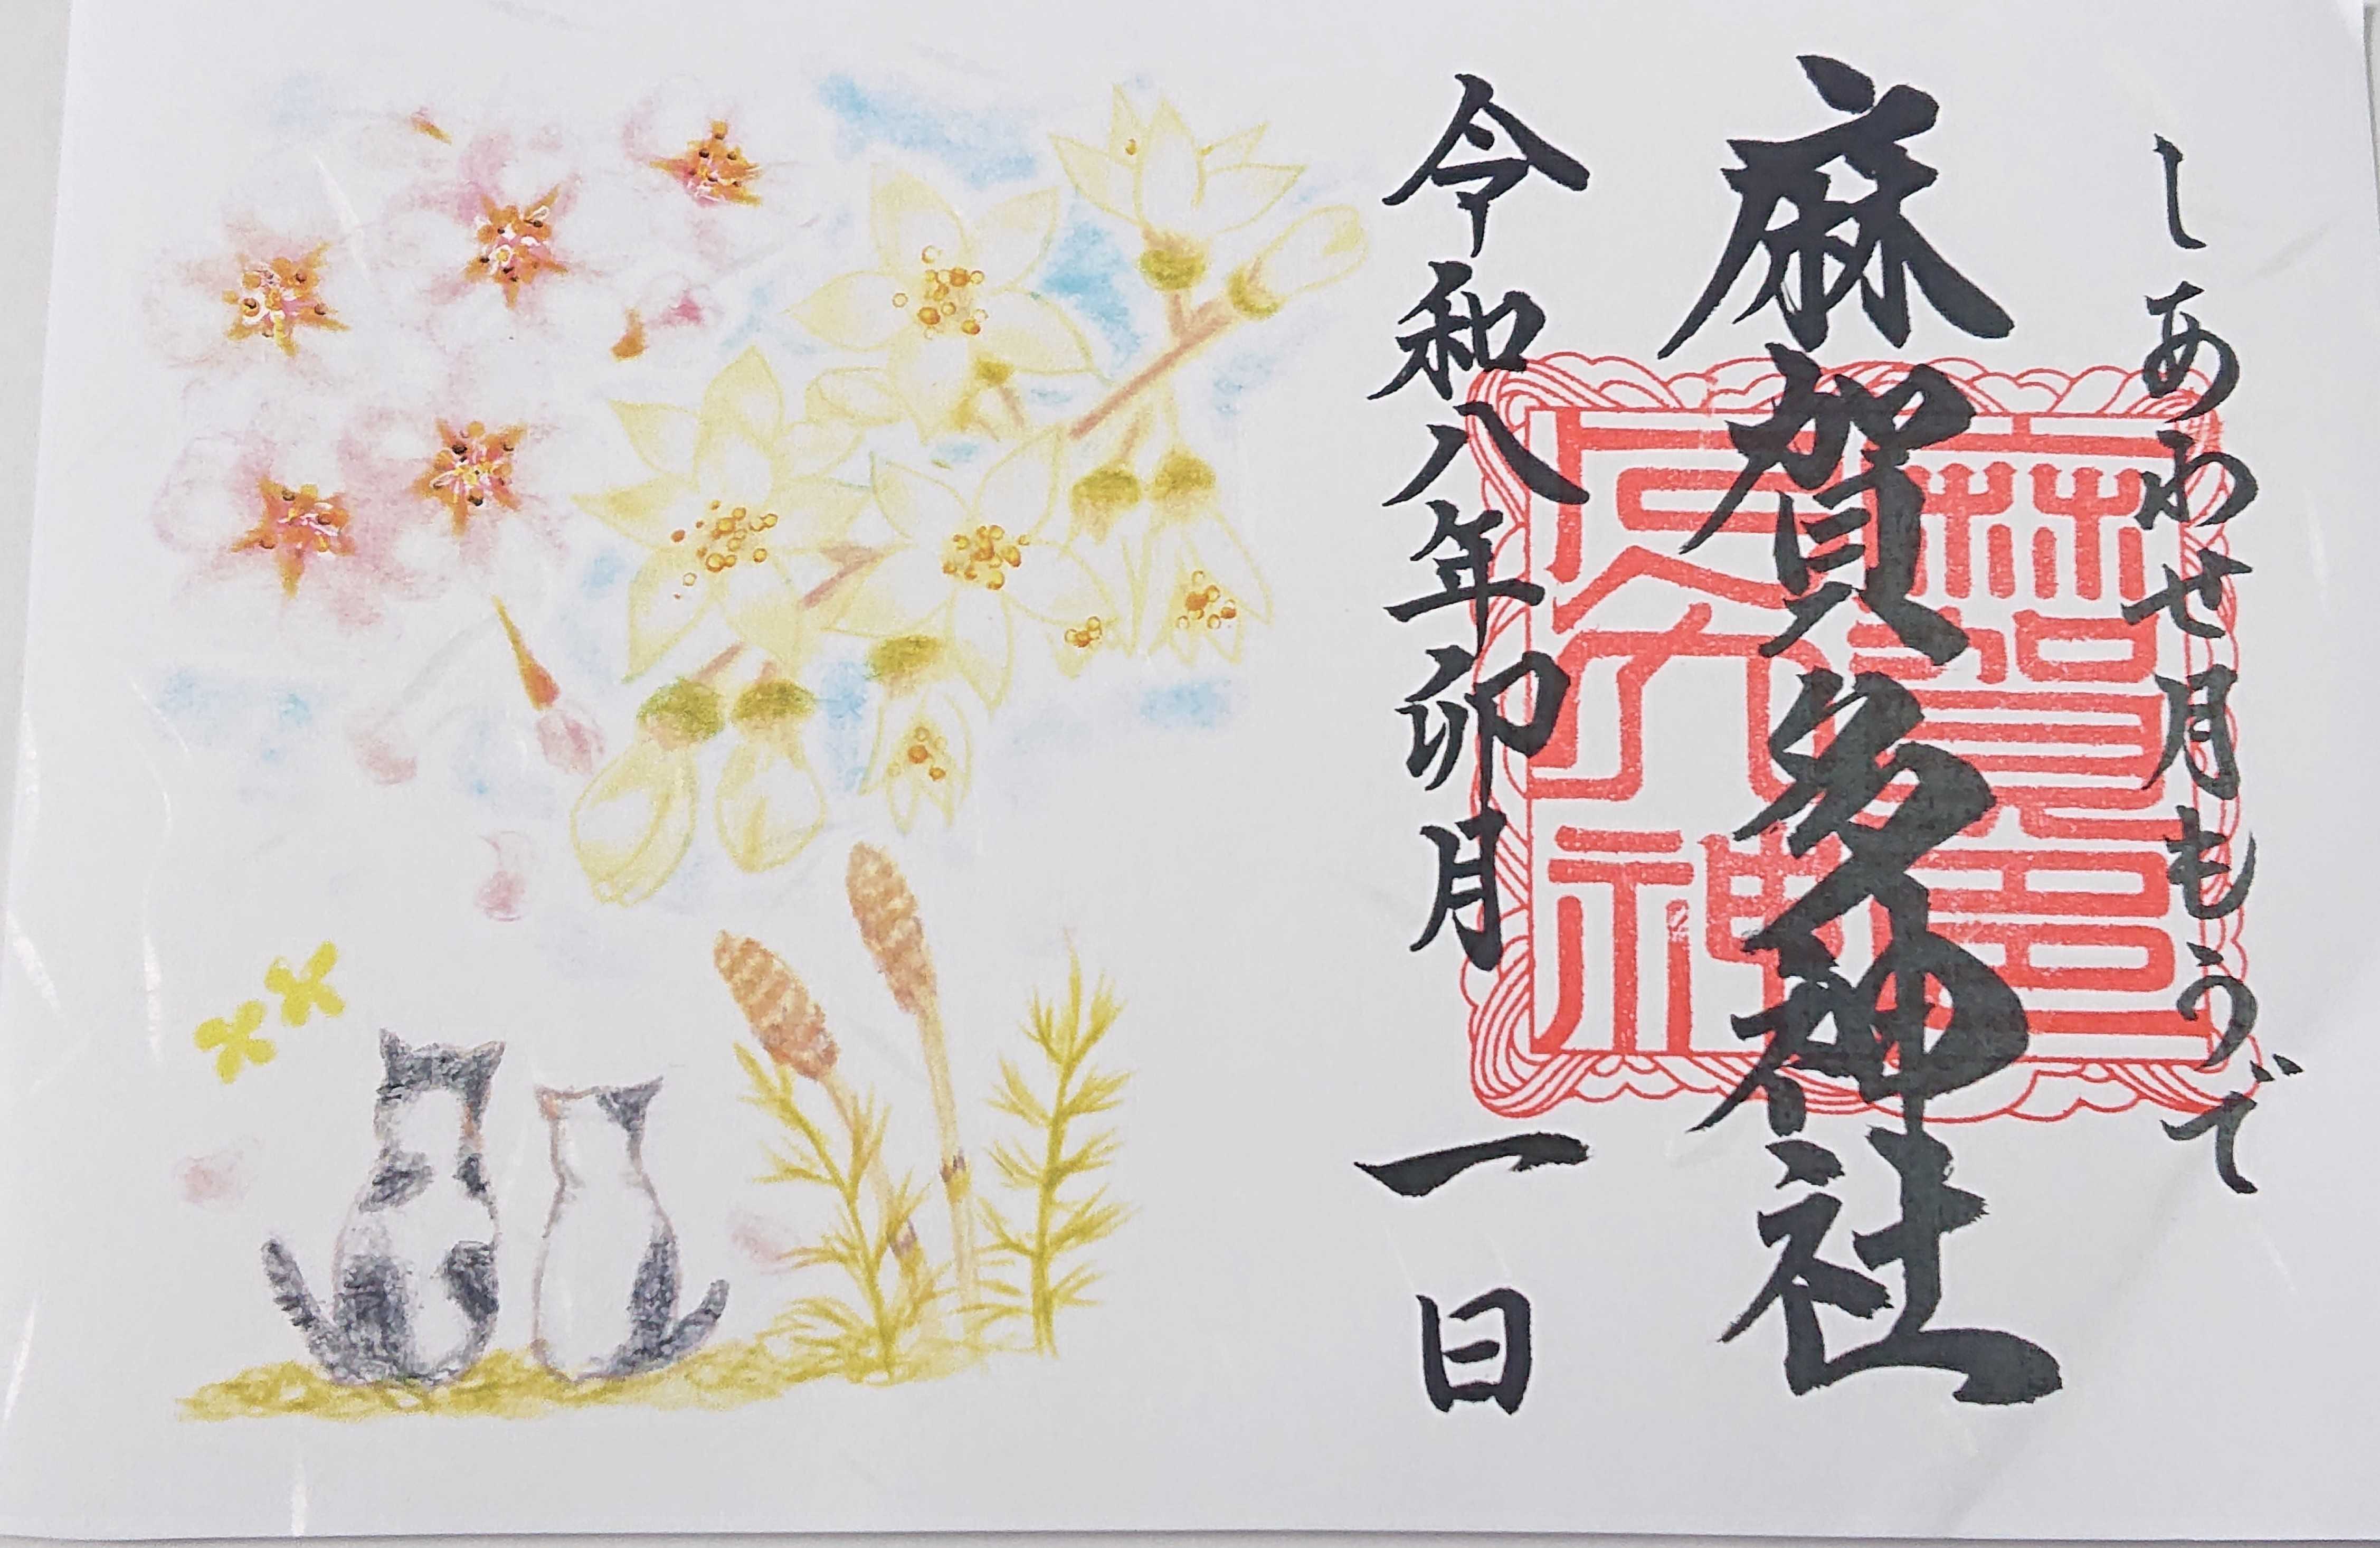 しあわせ月もうで
麻賀多神社
令和八年卯月 一日
麻賀多
大神